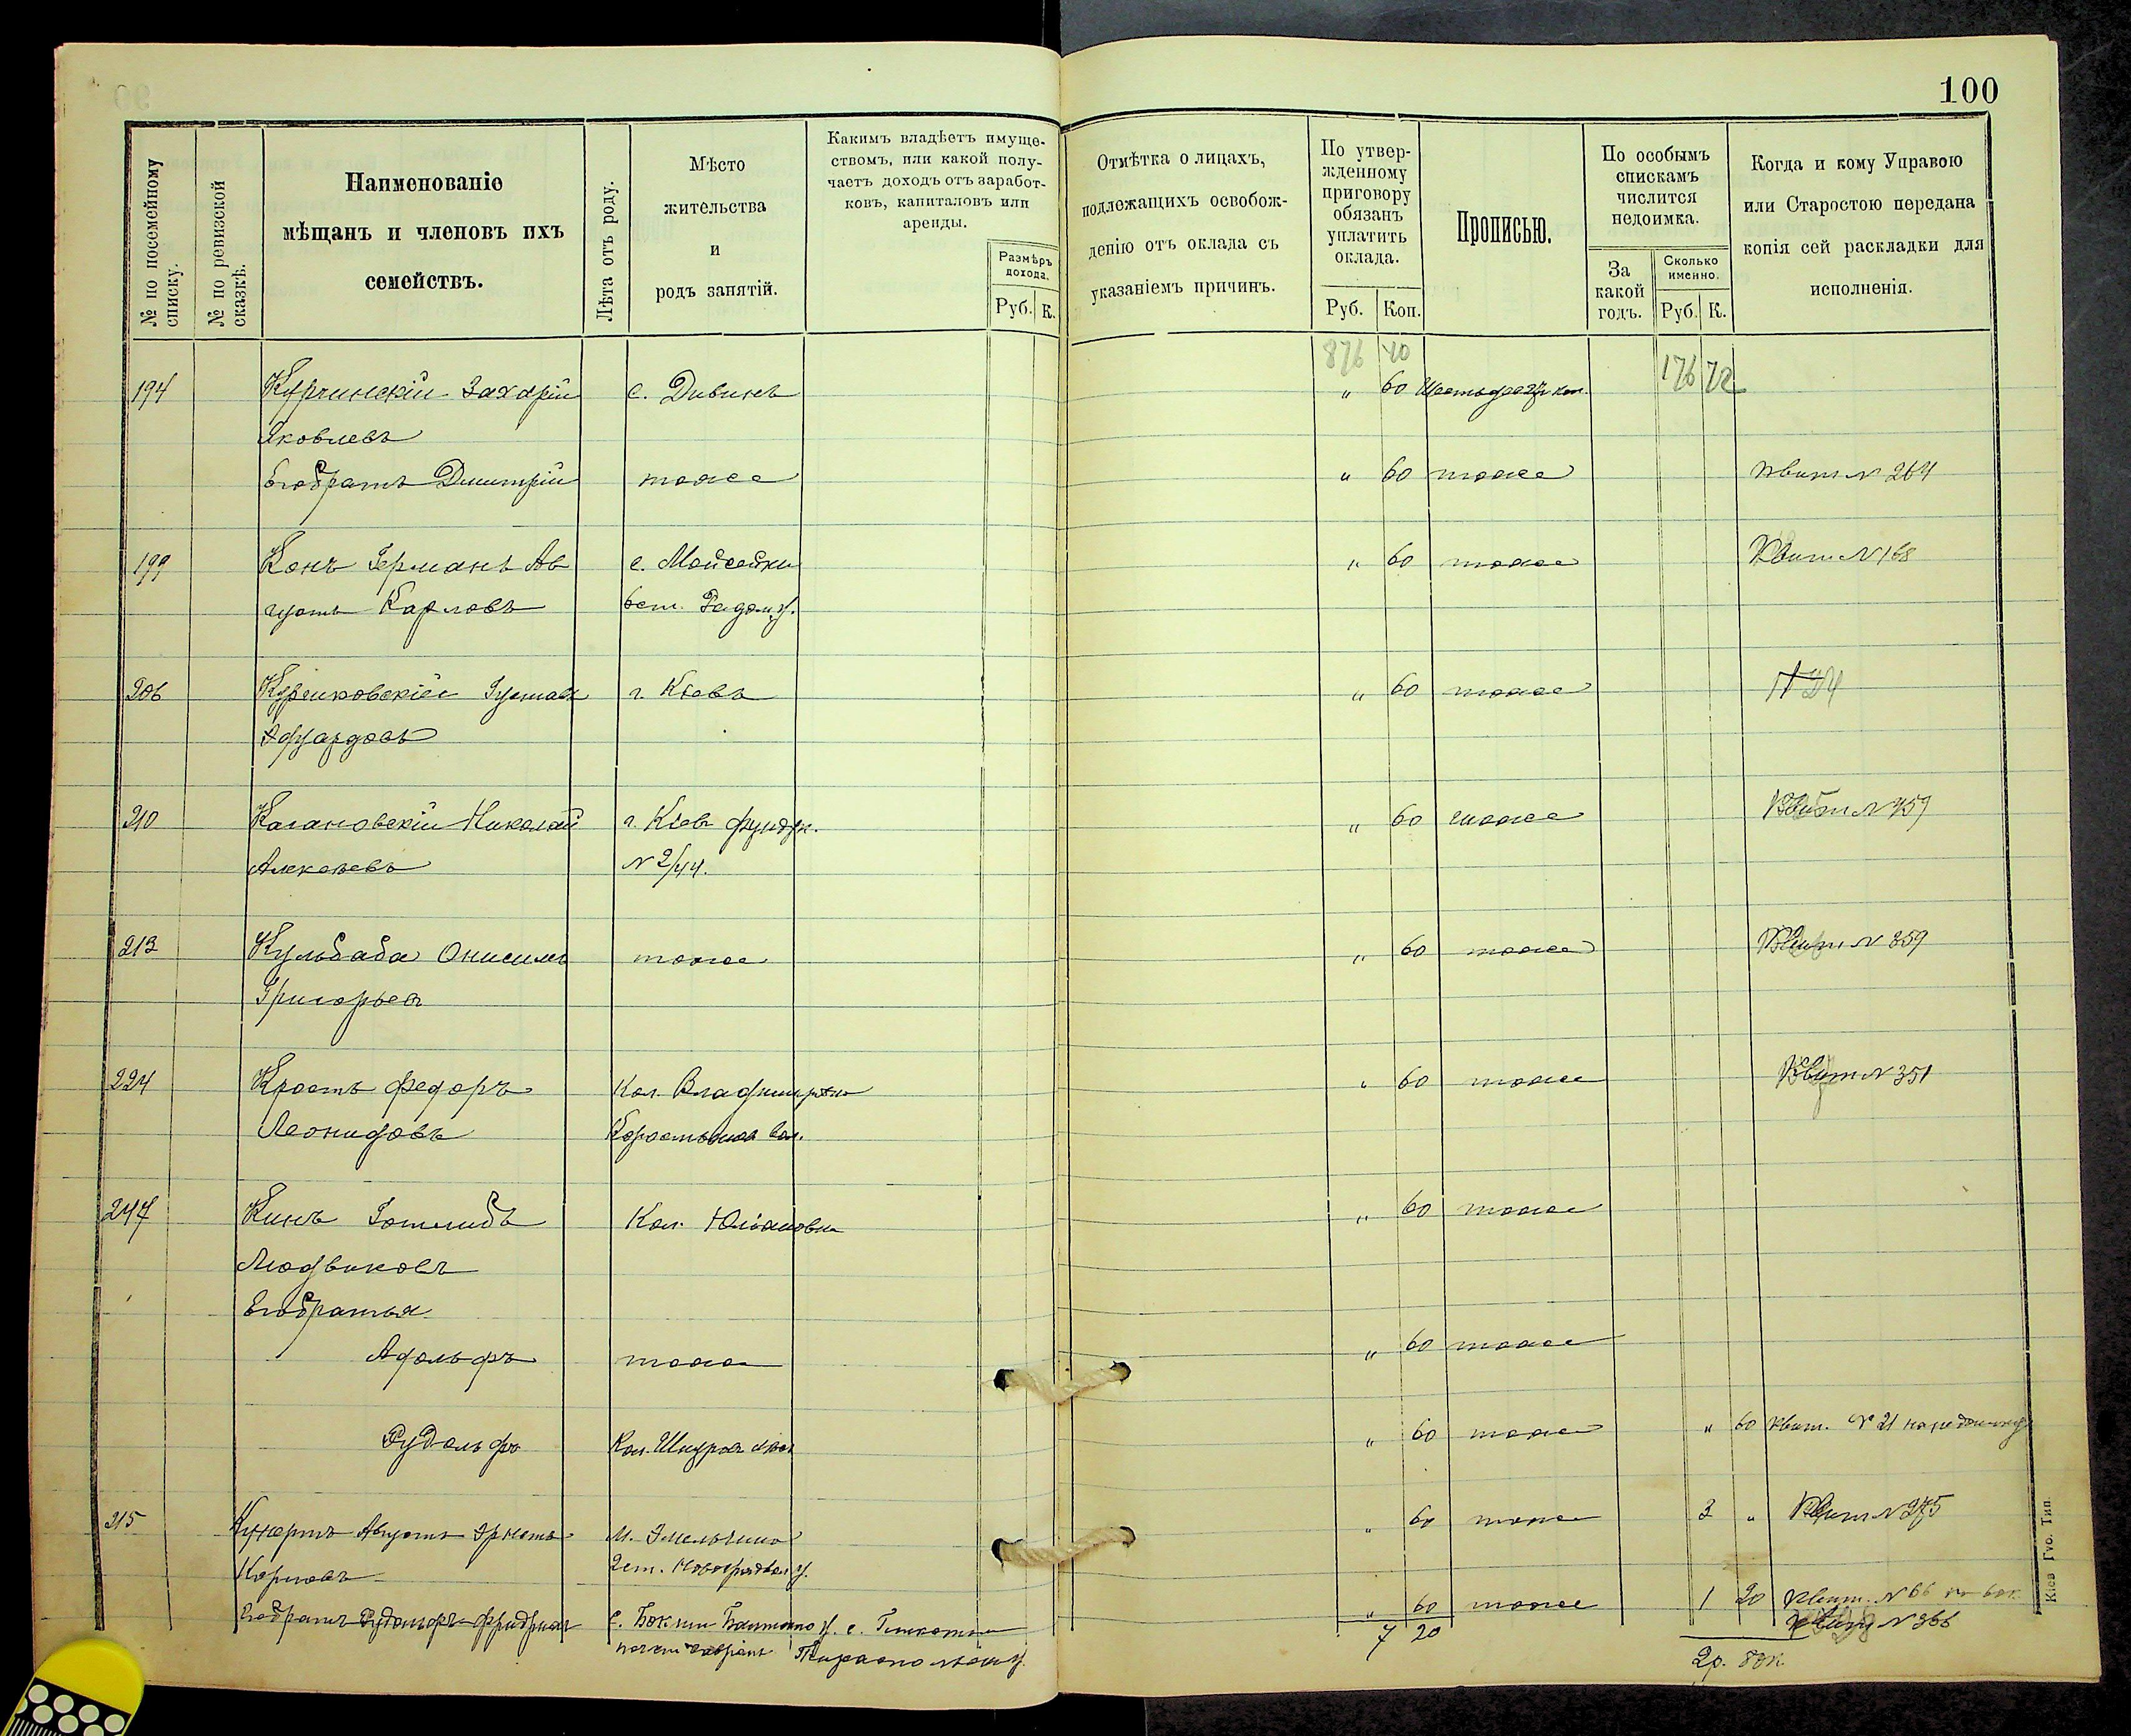 100
№ по посемейному списку.
№ по ревизской сказкѣ.
Наименованіе
мѣщанъ и членовъ ихъ
семействъ.
Лѣта отъ роду.
Мѣсто
жительства
и
родъ занятій.
Какимъ владѣетъ имуще-
ствомъ, или какой полу-
чаетъ доходъ отъ заработ-
ковъ, капиталовъ или
аренды.
Размѣръ
дохода.
Руб. К.
Отмѣтка о лицахъ,
подлежащихъ освобож-
денію отъ оклада съ
указаніемъ причинъ.
По утвер-
жденному
приговору
обязанъ
уплатить
оклада.
Руб. Коп.
Прописью.
По особымъ
спискамъ
числится
недоимка.
За
какой
годъ.
Сколько
именно.
Руб. К.
Когда и кому Управою
или Старостою передана
копія сей раскладки для
исполненія.
876 40 176 72
194 Курчинскій Захарій с. Дивинъ „ 60 Шестьдесят коп.
Яковлевъ
Его братъ Дмитрій тоже „ 60 тоже Квит № 264
199 Конъ Германъ Ав с. Мойсейки „ 60 тоже Квит № 168
густъ Карловъ Радом. у.
206 Густав г. Кіевъ „ 60 тоже № 24
Эдуардовъ
210 Кагановскій Николай г. Кіевъ фундук. „ 60 тоже Квит № 459
Алексѣевъ № 2/44.
213 Кульбаба Онисимъ тоже „ 60 тоже Квит № 359
Григорьев
224 Кростъ Федоръ Кол. Владимировка „ 60 тоже Квит № 351
Леонидовъ вол.
247 Кинъ Готлибъ Кол. Юліановка „ 60 тоже
Людвиковъ
Его братья
Адольфъ тоже „ 60 тоже
Рудольфъ Кол. „ 60 тоже „ 60 Квит. № 21 на недоимку
215 Кунертъ Августъ Эрнстъ М. Эмельчино „ 60 тоже 3 „ Квит № 275
Карловъ 2 ст. у.
Его братъ Рудольфъ Фридрих с. „ 60 тоже 1 20 Квит. № 66 60 к.
7 20 Квит № 366
2 р. 80 к.
Кіев Губ. Тип.